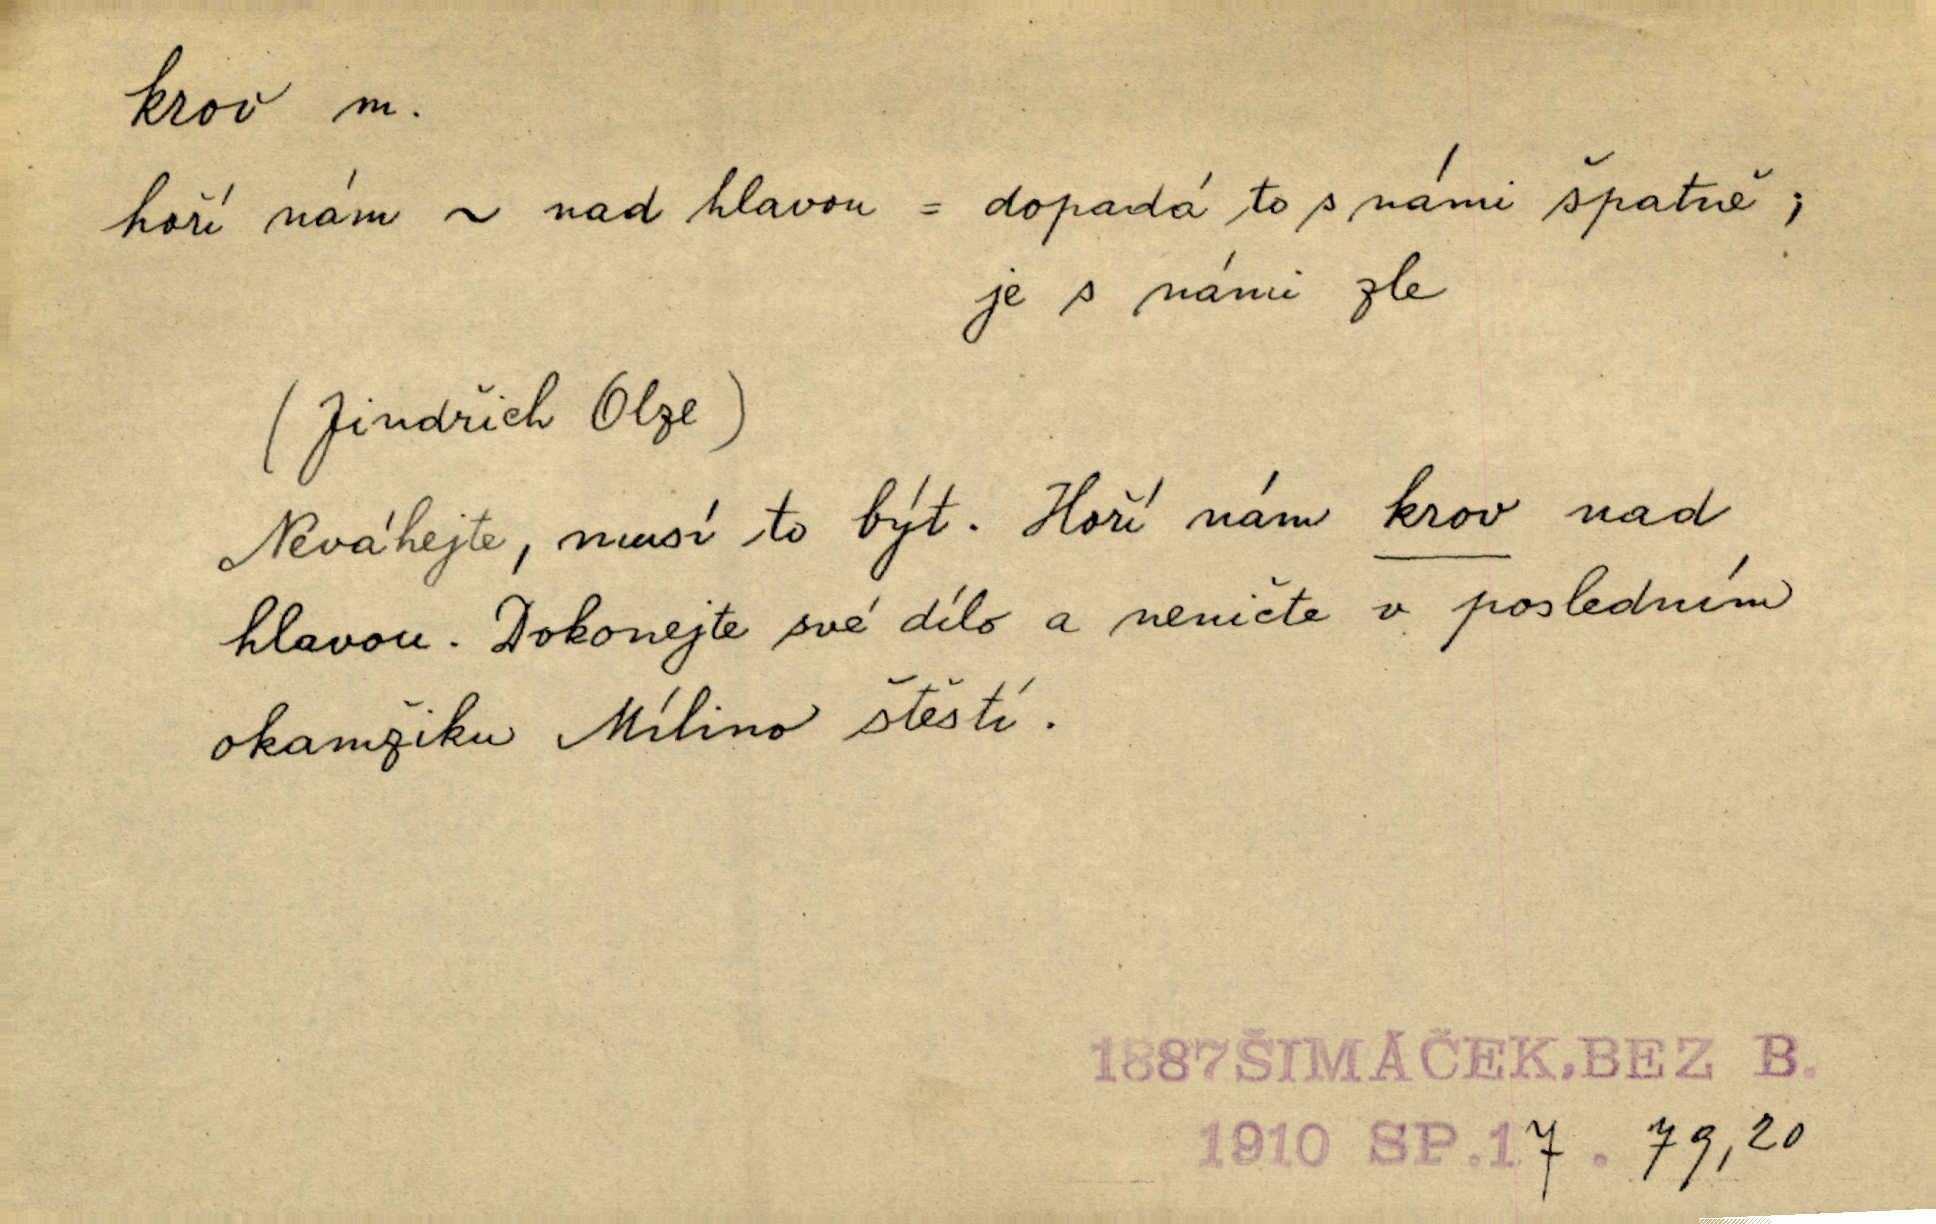 krov m.
hoří nám ~ nad hlavou = dopadá to s námi špatně;
je s námi zle
(Jindřich Olze)
Neváhejte, musí to být. Hoří nám krov nad
hlavou. Dokonejte své dílo a neničte v posledním
okamžiku Mílino štěstí.
1887 ŠIMÁČEK, BEZ B.
1910 SP.17. 79,20